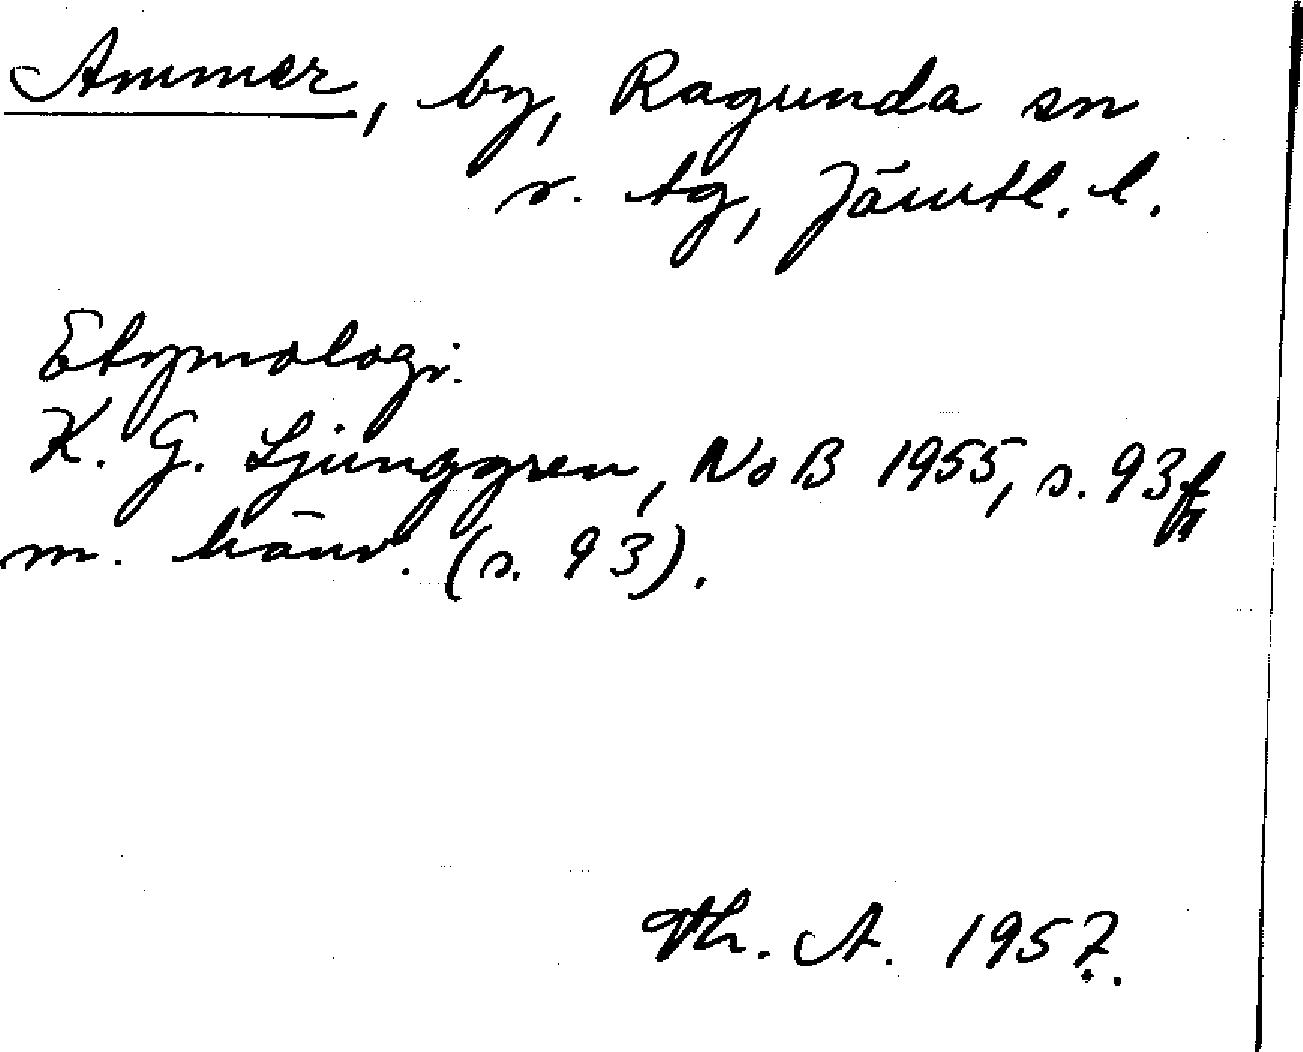 Ammer, by, Ragunda sn
o. tg, Jämtl. l.
Etymologi.
K. G. Ljunggren, NoB 1955, s. 93f
m. hänv. (s. 93).
Th. A. 1957.